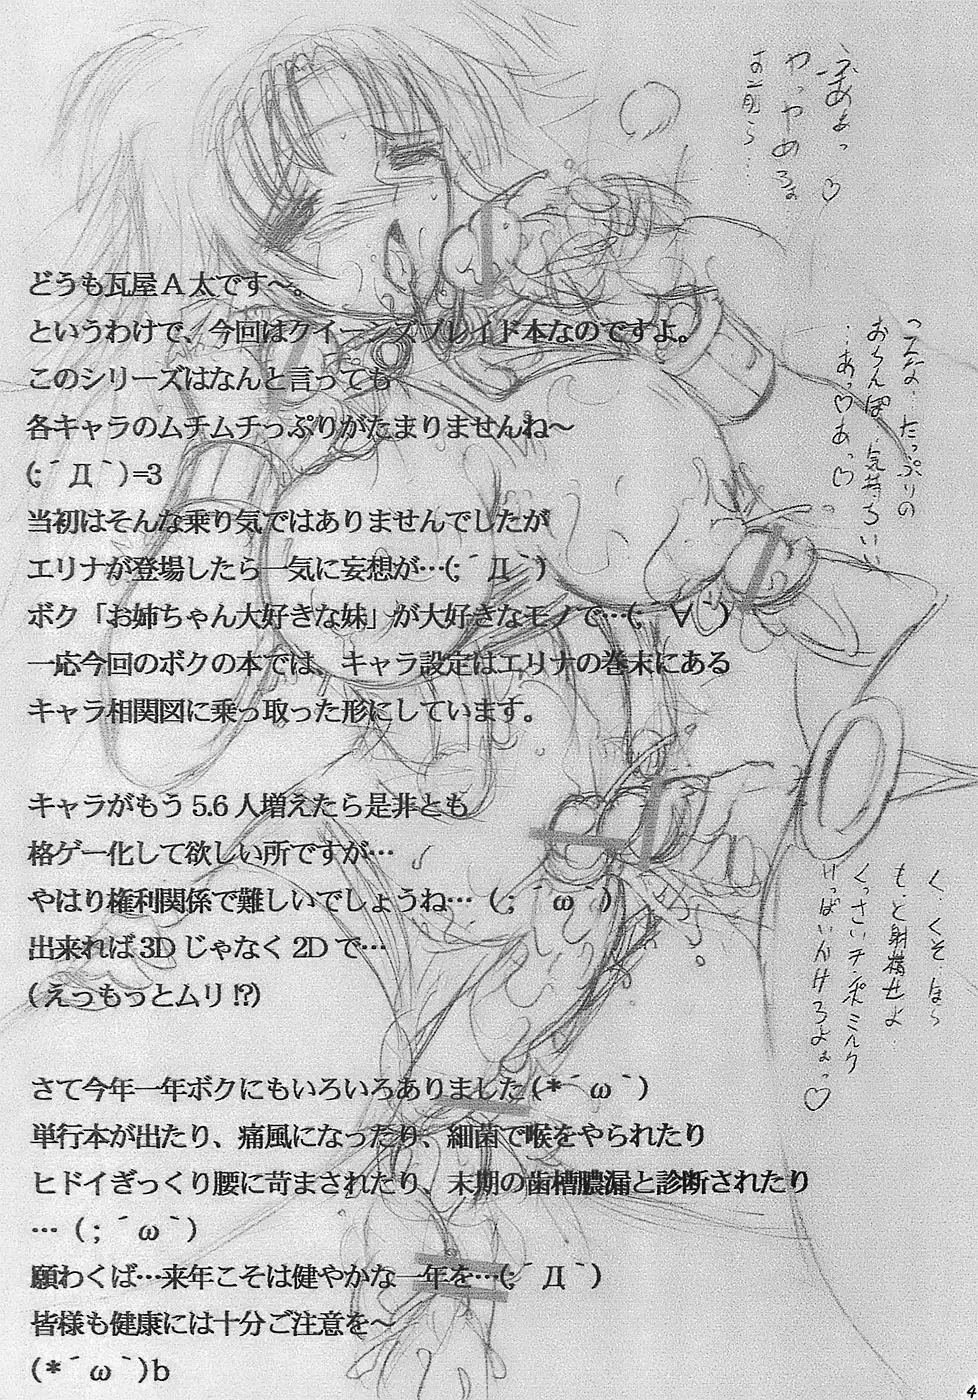 どうも瓦屋A太です～。
というわけで、今回はクイーンズブレイド本なのですよ。
このシリーズはなんと言っても
各キャラのムチムチっぷりがたまりませんね～
(;´Д｀)=3
当初はそんな乗り気ではありませんでしたが
エリナが登場したら一気に妄想が…(;´Д｀)
ボク「お姉ちゃん大好きな妹」が大好きなモノで…(;´∀｀)
一応今回のボクの本では、キャラ設定はエリナの巻末にある
キャラ相関図に乗っ取った形にしています。
キャラがもう5.6人増えたら是非とも
格ゲー化して欲しい所ですが…
やはり権利関係で難しいでしょうね…(;´ω｀)
出来れば3Dじゃなく2Dで…
(えっもっとムリ!?)
さて今年一年ボクにもいろいろありました(*´ω｀)
単行本が出たり、痛風になったり、細菌で喉をやられたり
ヒドイぎっくり腰に苛まされたり、末期の歯槽膿漏と診断されたり
…(;´ω｀)
願わくば…来年こそは健やかな一年を…(;´Д｀)
皆様も健康には十分ご注意を～
(*´ω｀)b
ふあぁっ♡
やっやめろぉ
お前ら…
こんな‥たっぷりの
おちんぽ‥気持ちいい
…あっ♡あっ♡
く、くそ‥ほら
もっと射精せよ
くっさいチ
いっぱいかけろよぉっ♡